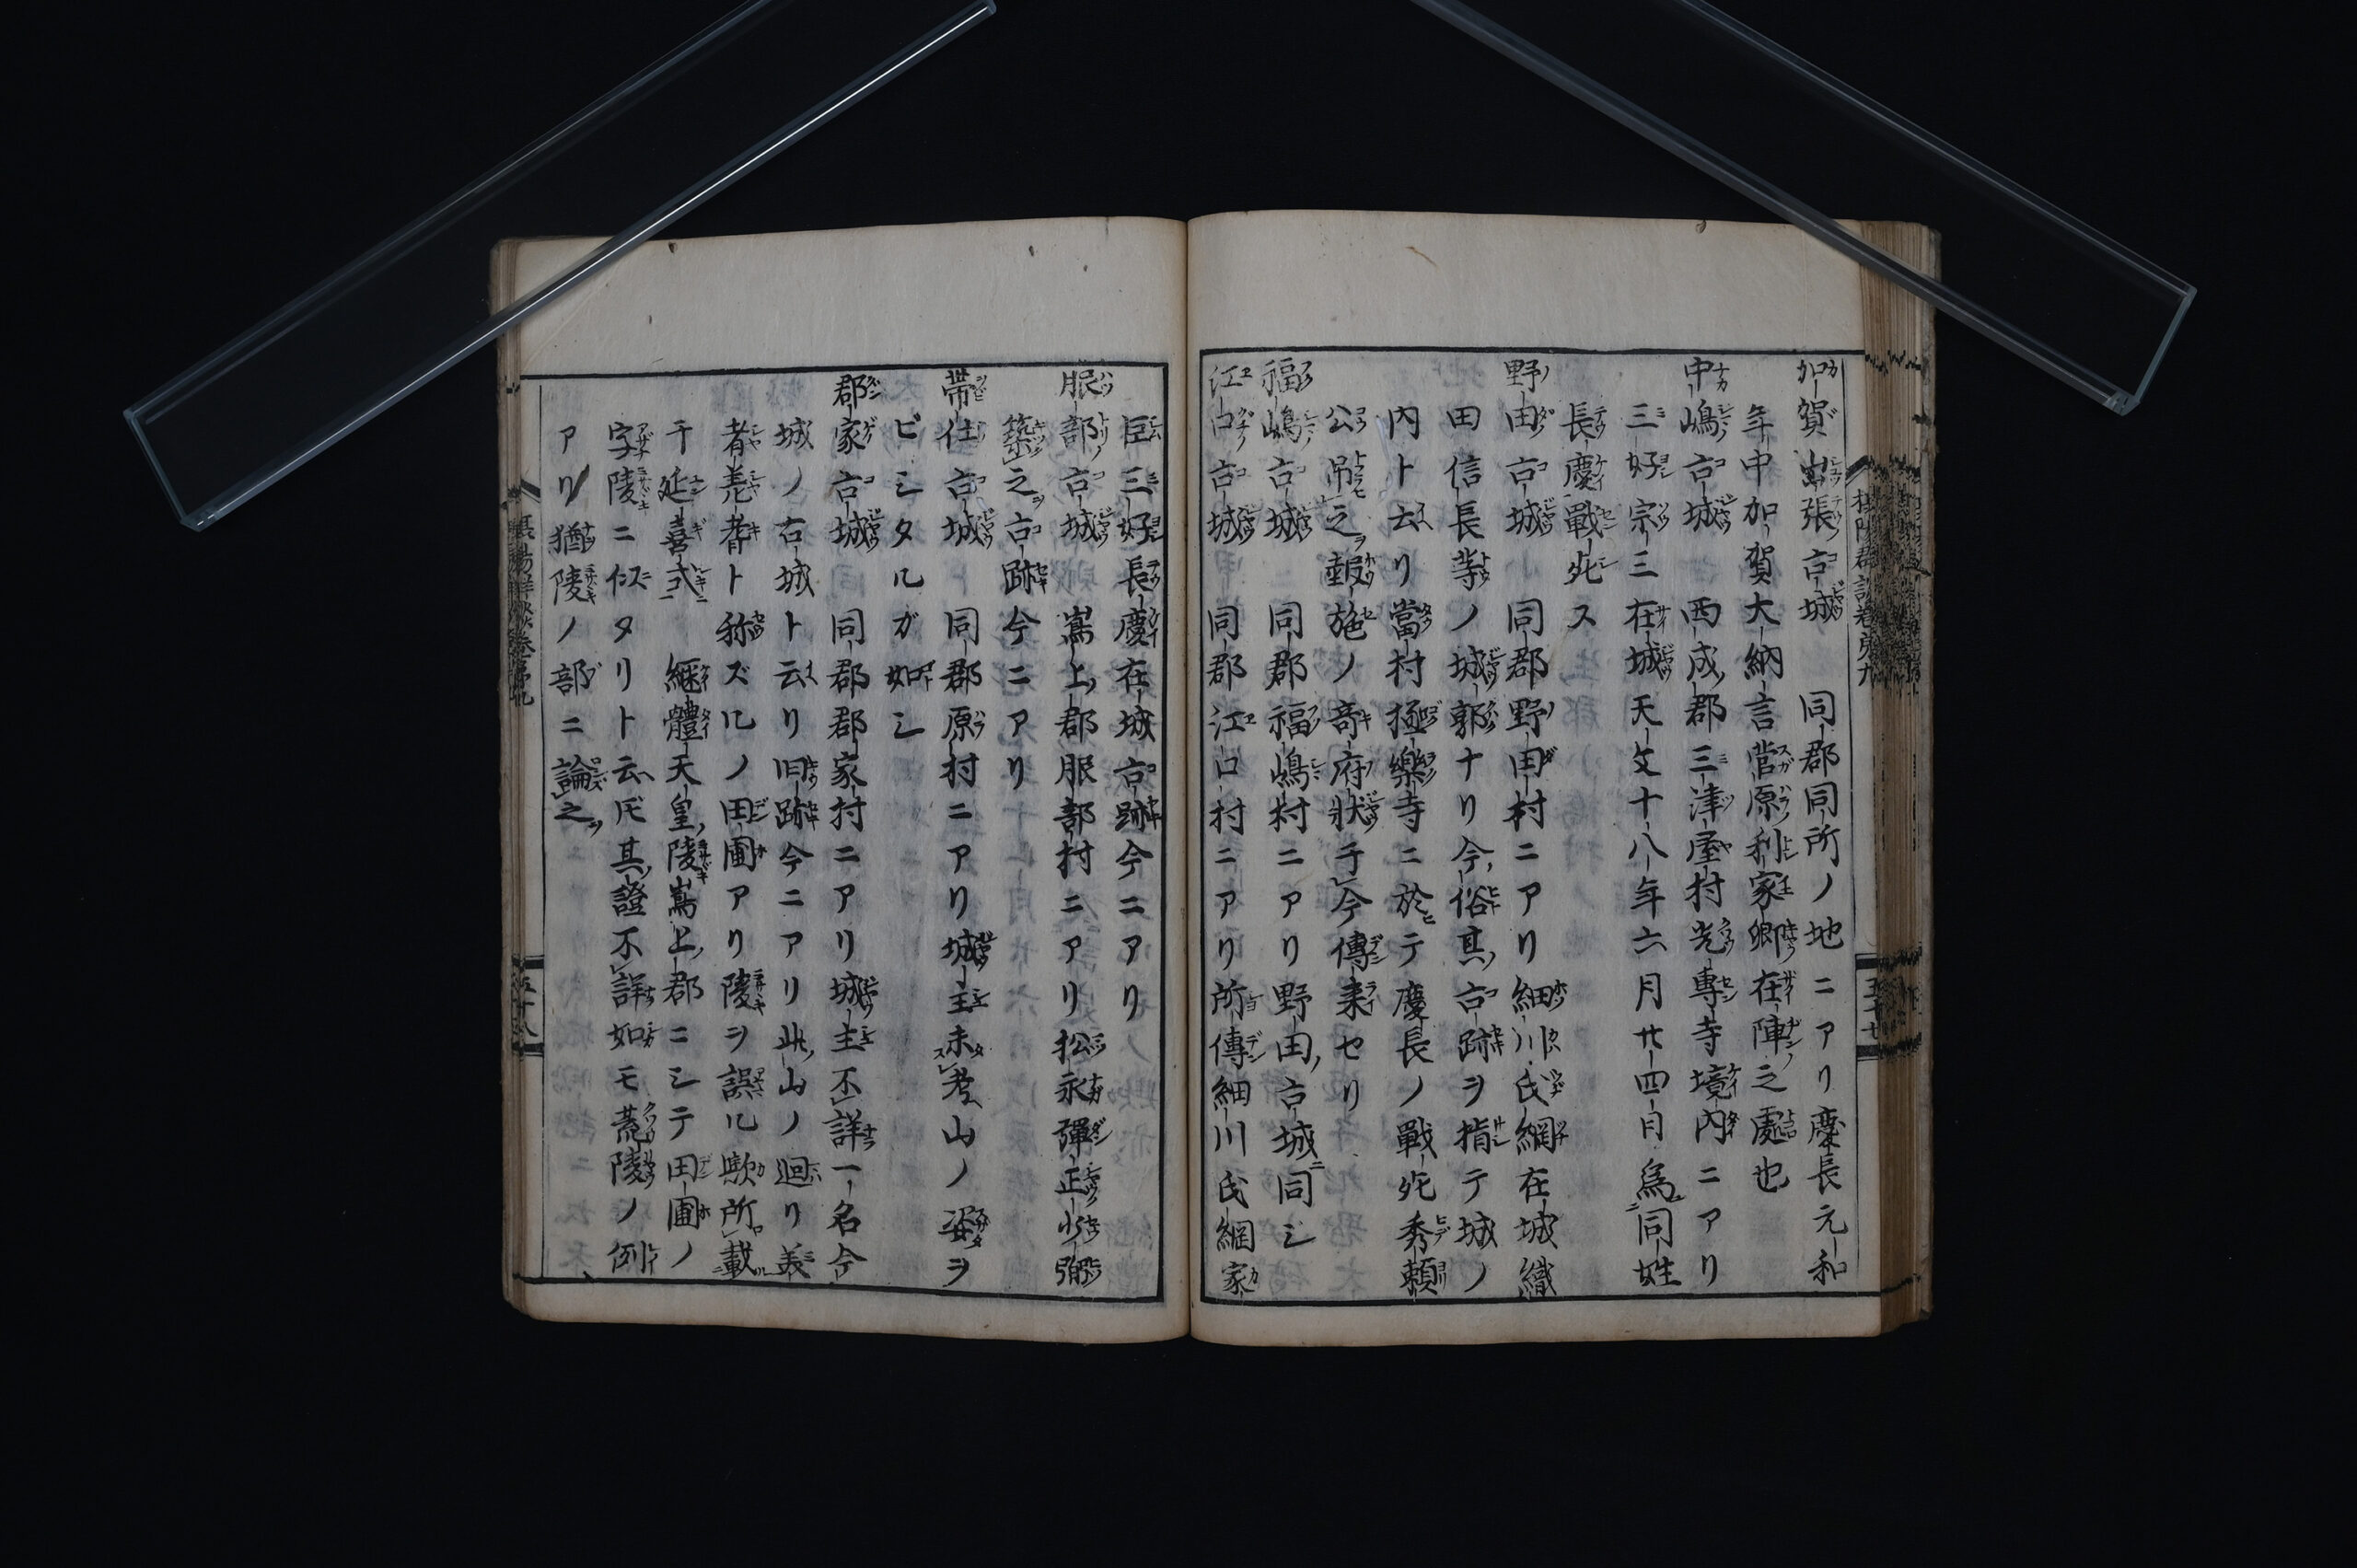 加賀出張古城 同郡同所ノ地ニアリ慶長元和
年中加賀大納言菅原利家卿在陣之處也
中嶋古城 西成郡三津屋村光專寺境内ニアリ
三好宗三在城天文十八年六月廿四日為同姓
長慶戰死ス
野田古城 同郡野田村ニアリ細川氏綱在城織
田信長等ノ城郭ナリ今俗其古跡ヲ指テ城ノ
内ト云リ當村極樂寺ニ於テ慶長ノ戰死秀頼
公吊之報施ノ寄府狀于今傳来セリ
福嶋古城 同郡福嶋村ニアリ野田古城ニ同シ
江口古城 同郡江口村ニアリ所傳細川氏綱家
臣三好長慶在城古跡今ニアリ
服部古城 嶌上郡服部村ニアリ松永彈正少弼
築之古跡今ニアリ
帯仕古城 同郡原村ニアリ城主未考山ノ姿ヲ
ビシタルガ如シ
郡家古城 同郡郡家村ニアリ城主不詳一名今
城ノ古城ト云リ旧跡今ニアリ此山ノ迴リ美
者羗者ト称ズルノ田圃アリ陵ヲ誤ル歟所載
于延喜式 継體天皇陵嶌上郡ニシテ田圃ノ
字陵ニ似タリト云𪜈其證不詳如モ荒陵ノ例
アリ猶陵ノ部ニ論之
五十七
五十八